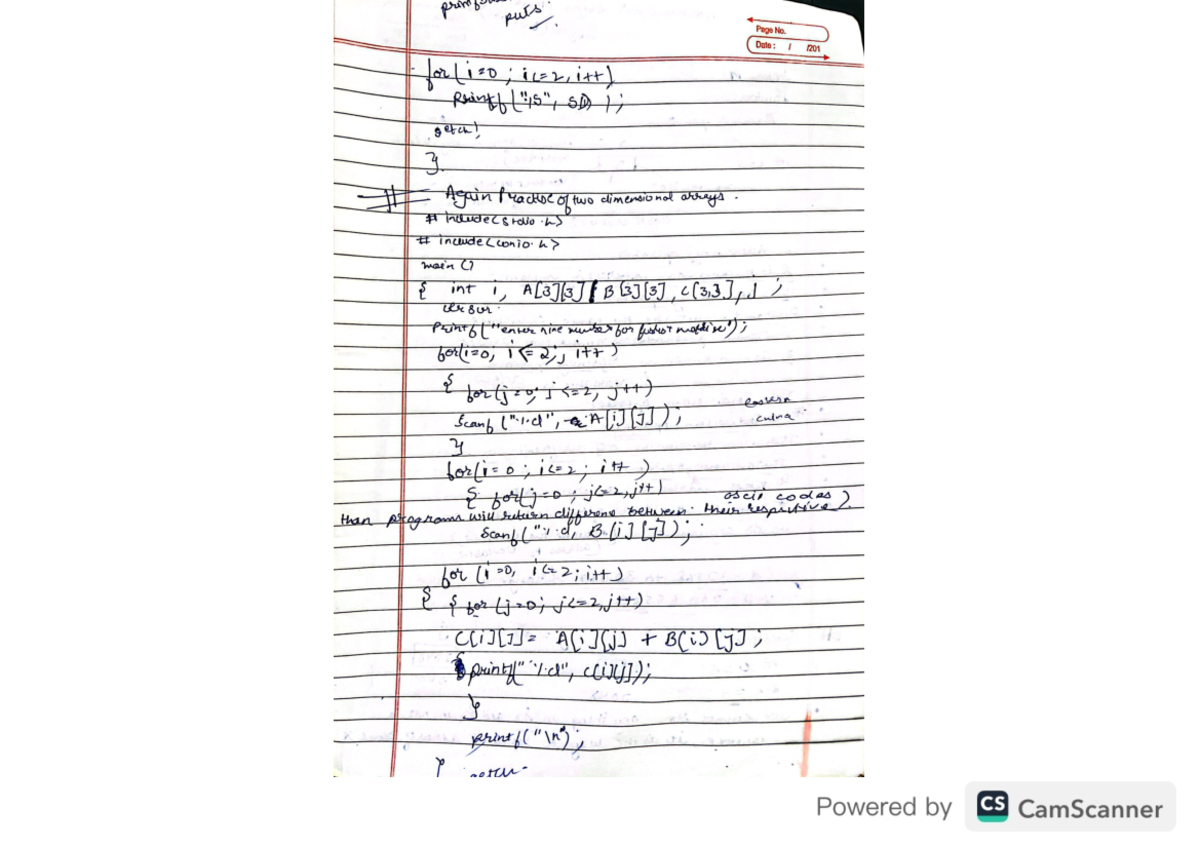 puts
Page No.
Date : / /201
for(i=0; i<=2, i++)
printf("%s", S[i]);
getch!
}
# Again Practise of two dimensional arrays.
# include<stdio.h>
# include<conio.h>
main ()
{ int i, A[3][3] B[3][3], C[3,3], j ;
Printf("enter nine number for matrix");
for(i=0; i<=2;; i++)
{ for(j=0; j<=2, j++)
Scanf("%d", &A[i][j]);
}
for(i=0; i<=2; i++)
{ for(j=0; j<=2, j++)
ascii codes)
than programs will return difference between their respective
Scanf("%d, B[i][j]);
for (i=0, i<=2; i++)
{ { for (j=0; j<=2, j++)
C[i][j]= A[i][j] + B[i][j];
printf("%d", C[i][j]);
}
printf("\n");
} getch.
Powered by CS CamScanner